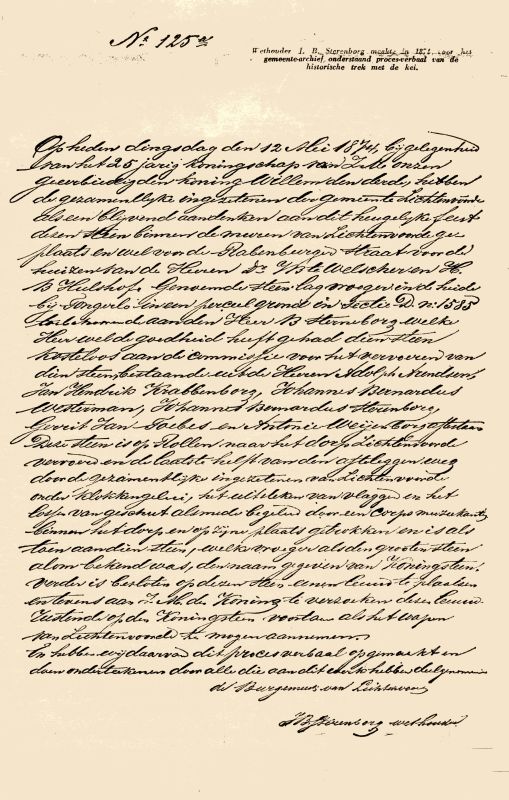 No 125
Wethouder J. B. Sterenborg maakte in 1874 voor het
gemeente-archief onderstaand proces-verbaal van de
historische trek met de kei.
Op heden dingsdag den 12 Mei 1874, bij gelegenheid
van het 25 jarig koningschap van Zelle onzen
geeerbiedigden koning Willem den derde, hebben
de gezamentlijke ingezetenen der Gemeente Lichtenvoorde
als een blijvend aandenken aan dit heugelijke feest
dezen steen binnen de muuren van Lichtenvoorde ge
plaats en wel voor de Rabenburger straat voor de
huizen van de Heeren Welscher en H.
B Hulshof. Genoemde Steen lag vroeger in de heide
bij Vragerlo in een perceel grond in Sectie D. no. 1585
toebehorende aan den Heer B Sterneborg welke
Heer wel de goedheid heeft gehad dien steen
kosteloos aan de commissie voor het vervoeren van
dien steen bestaande uit de Heeren Adolph
Jan Hendrik Krabbenborg, Johannes Bernardus
Westerman, Johannes Bernardus Sterenborg,
Gerrit Jan en Antonie Weijenborg aftestaan
Deze steen is op Rollen naar het dorp Lichtenvoorde
vervoerd en de laatste helft van den afteleggen weg
door de gezamentlijke ingezetenen van Lichtenvoorde
onder klokkengelui, het uitsteken van vlaggen en het
lossen van geschut alsmede begeleid door een Corps muzikanten
binnen het dorp en op zijne plaats getrokken en is als
toen aan dien steen, welke vroeger als den grooten steen
alom bekend was, den naam gegeven van Koningsteen.
verder is besloten op dezen steen eenen leeuw te plaatsen
en tevens aan Z. M. den Koning te verzoeken dezen Leeuw
rustend op den Koningsteen voortaan als het wapen
van Lichtenvoorde te mogen aannemen.
En hebben wij daarvan dit proces verbaal opgemaakt en
doen onderteekenen door alle die aan dit werk hebben deelgenomen
de Burgemeester van Lichtenvoorde
JB Sterenborg wethouder